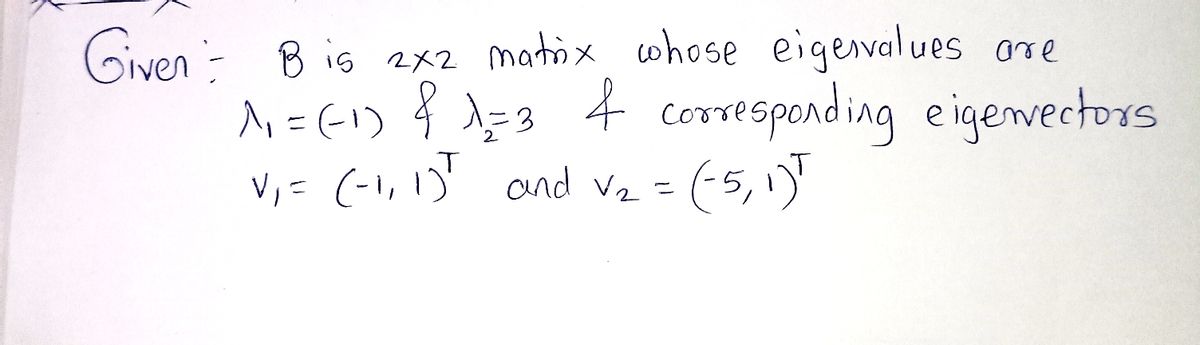 Given :- B is 2x2 matrix whose eigenvalues are
λ₁ = (-1) & λ₂=3 & corresponding eigenvectors
v₁ = (-1, 1)ᵀ and v₂ = (-5, 1)ᵀ